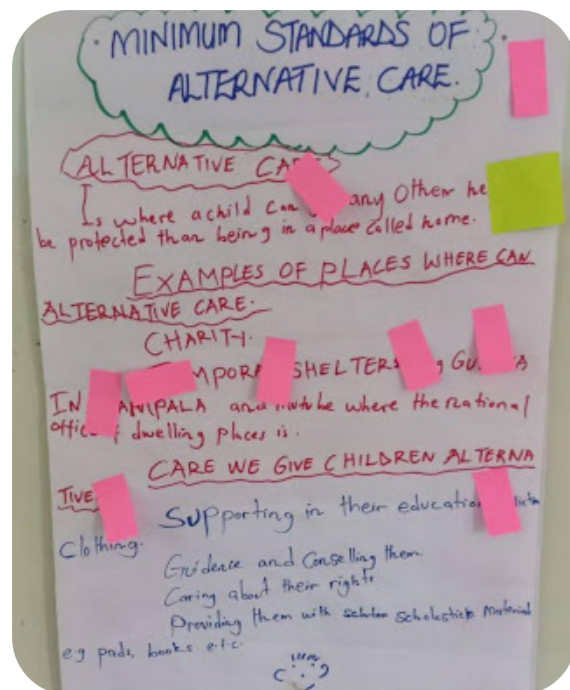 MINIMUM STANDARDS OF
ALTERNATIVE CARE.
ALTERNATIVE
Is where a child can any Other
be protected than being in a place called home.
EXAMPLES OF PLACES WHERE CAN
ALTERNATIVE CARE.
CHARITY.
SHELTER
IN and where the national
dwelling places is.
CARE WE GIVE CHILDREN ALTERNA
TIVE
Supporting in their
Clothing.
Guidence and Conselling them.
Caring about their rights
Providing them with scholastick material
eg pads, books etc.